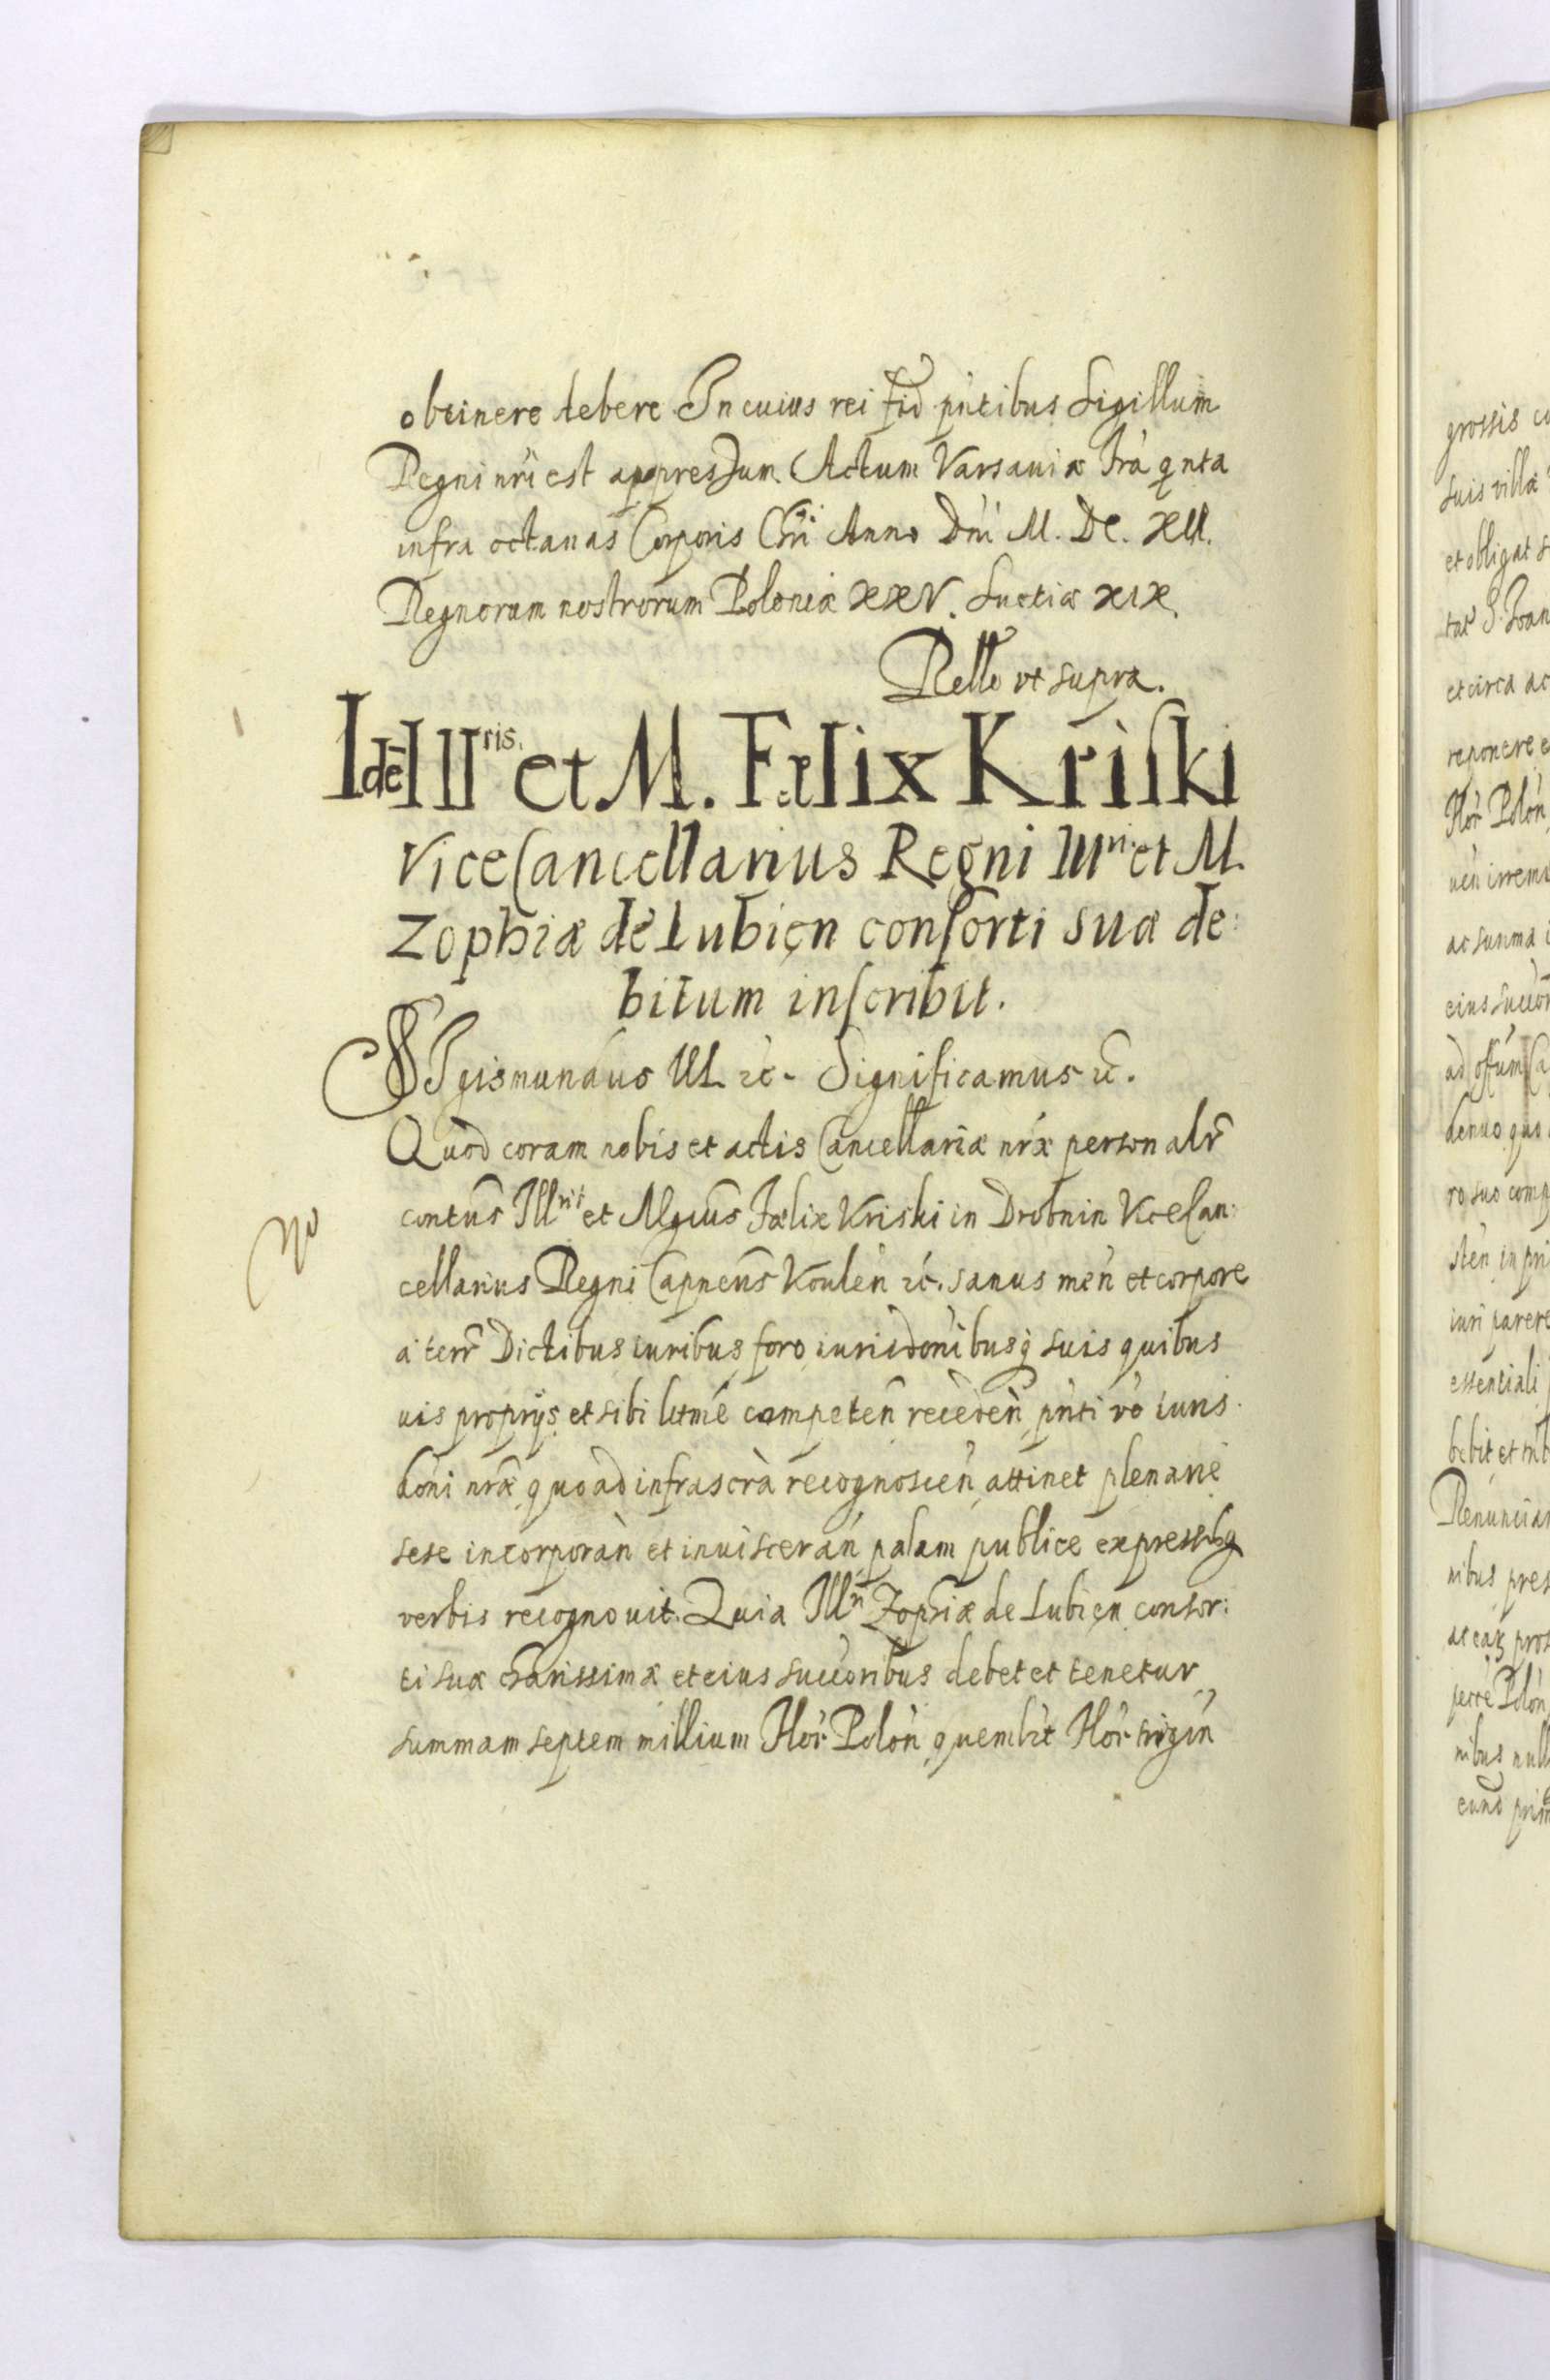 obtinere debere. In cuius rei fid pñtibus Sigillum
Regni nři est appressum. Actum Varsauiæ fra qnta
infra octauas Corporis Chri Anno Dni M. DC. XII.
Regnorum nostrorum Poloniæ XXV. Suetiæ XIX.
Rello vt supra.
Idē Illris. et M. Fælix Kriſki
ViceCancellarius Regni Illri. et M.
Zophiæ de Lubięn conſorti suæ de:
bitum inſcribit.
SIgismundus III. ꝛc. Significamus ꝛc.
Quod coram nobis et actis Cancellariæ nræ personalr
contus Illris et Mgcus Fœlix Kriski in Drobnin ViceCan:
cellarius Regni Capneus Koulen ꝛc. sanus men et corpore
a terr Dictibus iuribus foro iurisdonibusq suis quibus
uis proprijs et sibi letme competen receden pnti vo iuris
doni nræ quoad infrascra recognoscen attinet plenarie
sese incorporan et inuisceran palam publice expressisq
verbis recognouit. Quia Illri Zophiæ de Lubięn consor:
ti suæ charissimæ et eius succoribus debet et tenetur
summam septem millium flor Polon quemlbt flor trigin
No
grossis
suis villæ
et obligat
S. Joan
et circa ac
reponere
flor Polon
ac summa
eius succor
denuo quo
ro suo comp
iuri parere
essentiali
Renuncian
nibus pres
nibus null